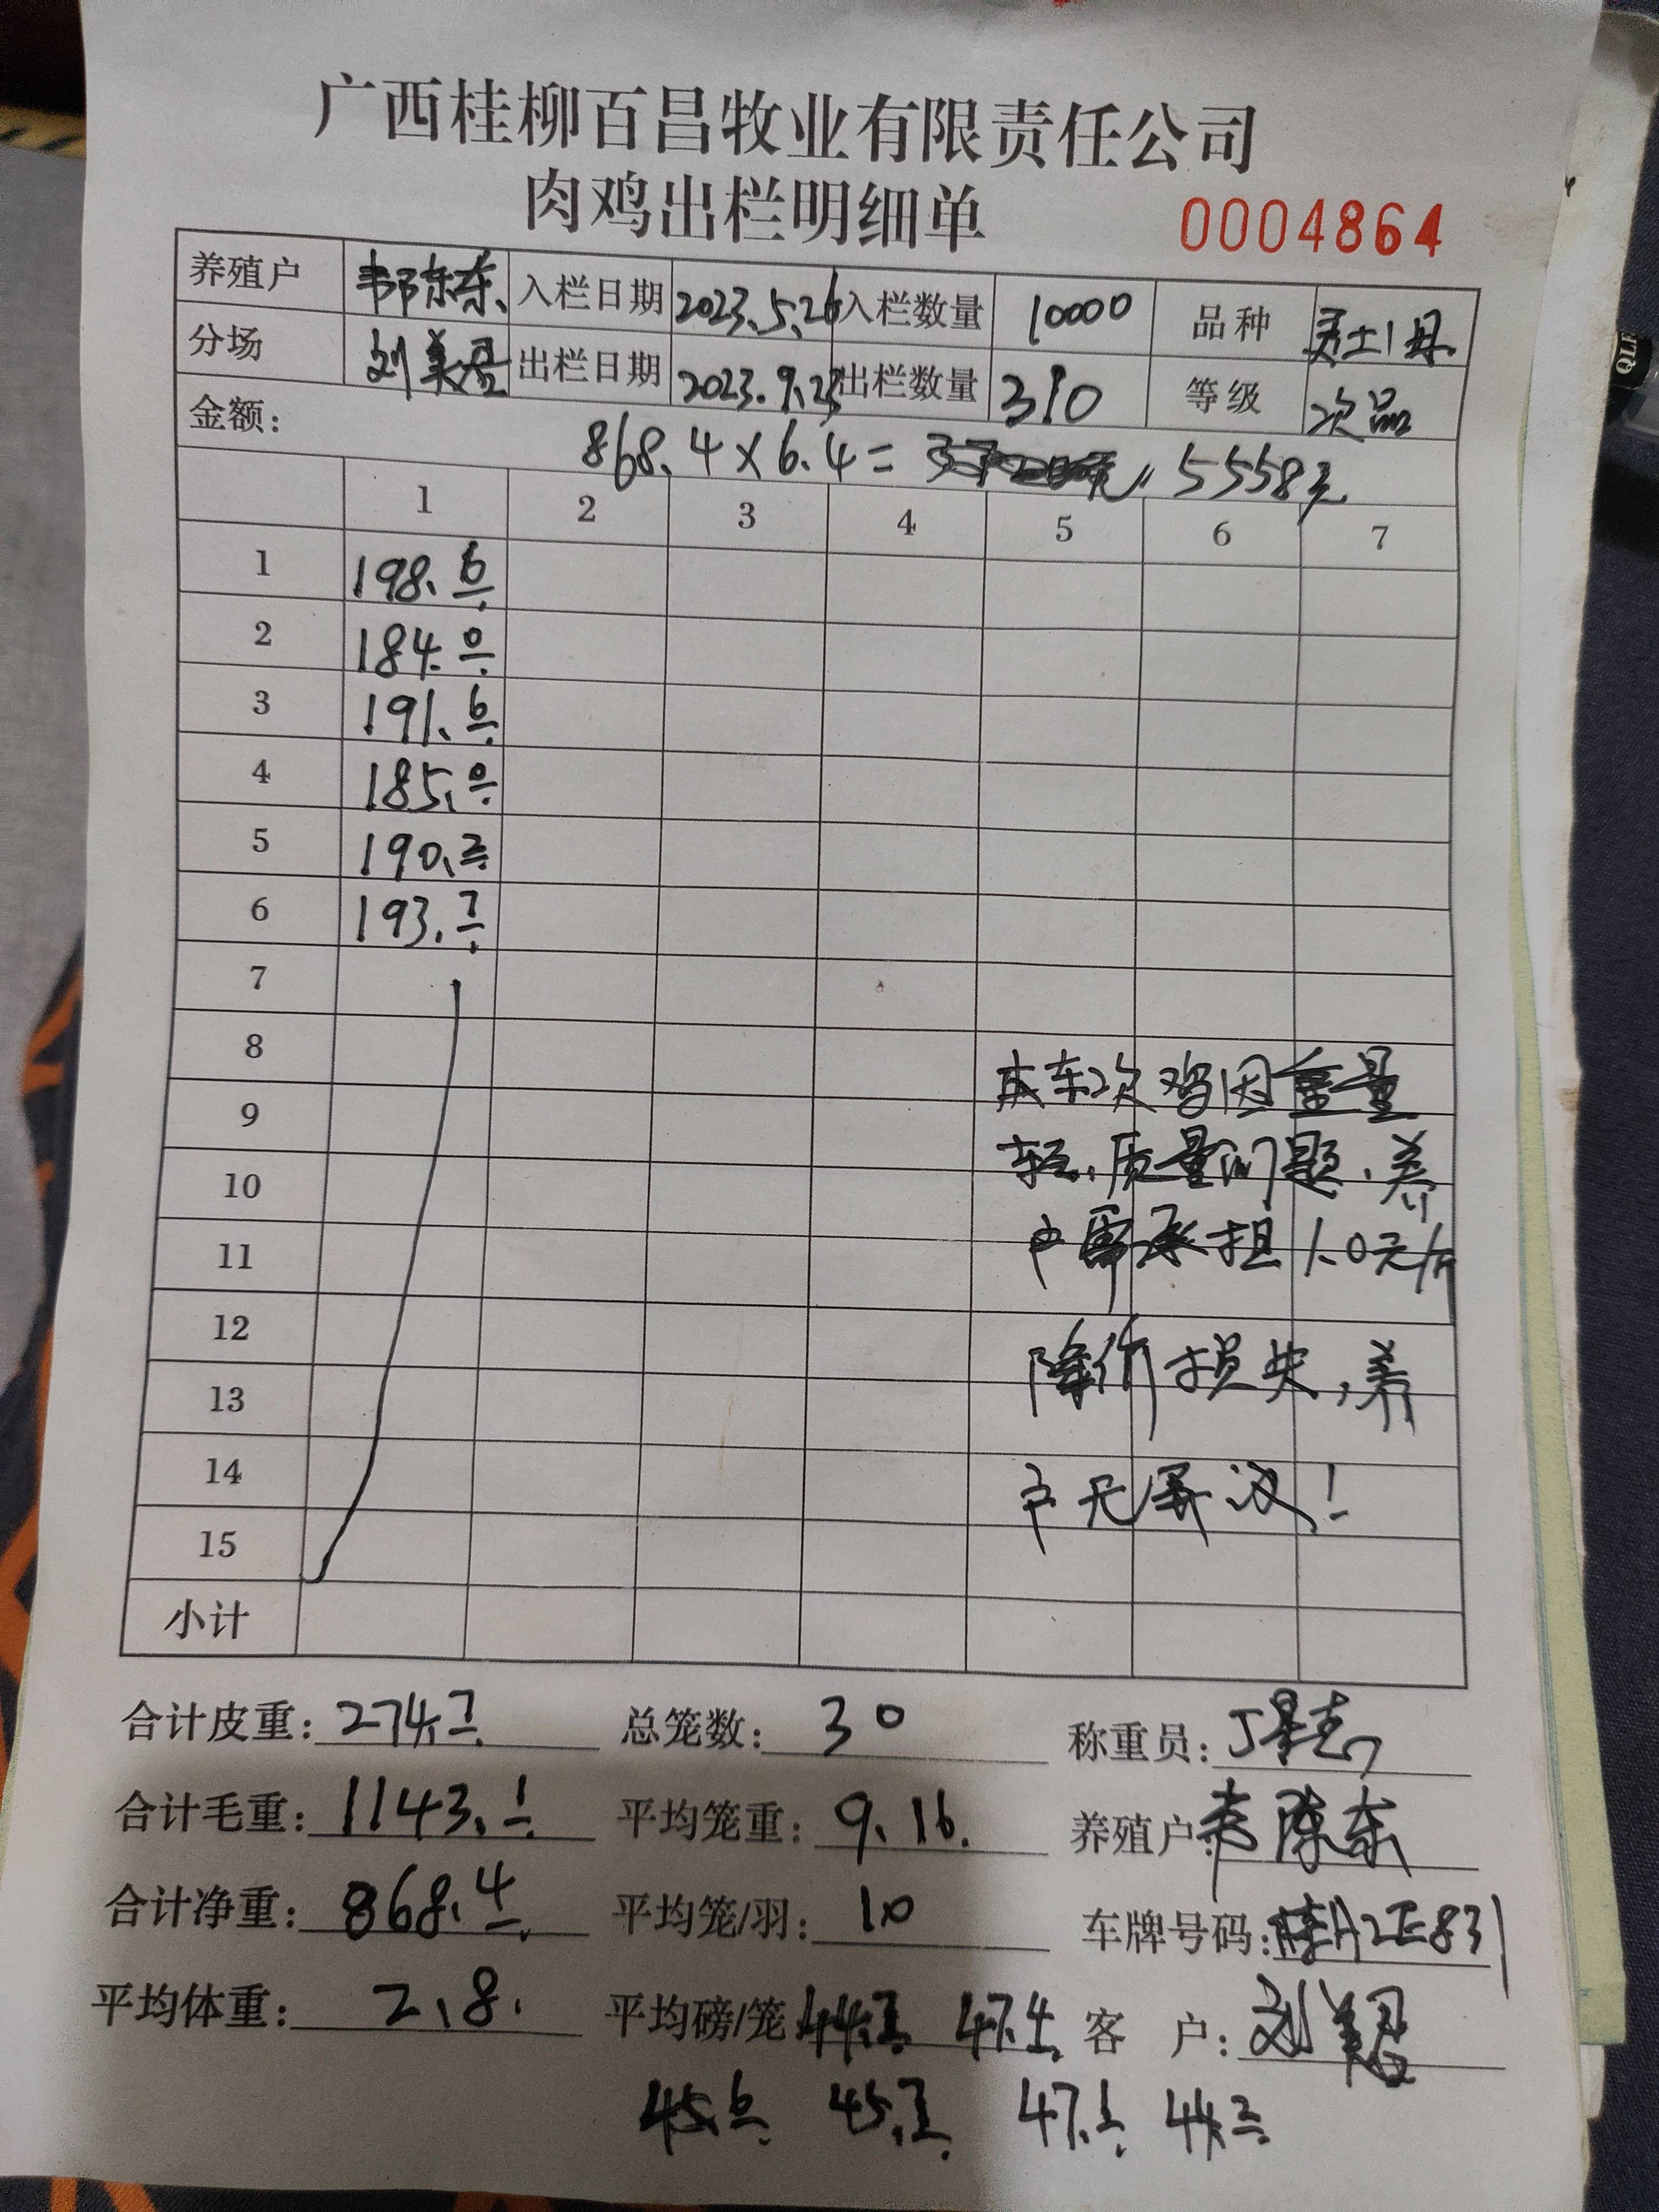 广西桂柳百昌牧业有限责任公司
肉鸡出栏明细单 0004864
养殖户 韦陈东、 入栏日期 2023.5.26 入栏数量 10000 品种 土1母
分场 刘美君 出栏日期 2023.9.25 出栏数量 310 等级 次品
金额: 868.4×6.4= 5558元
1 2 3 4 5 6 7
1 198.6
2 184.0
3 191.6
4 185.0
5 190.2
6 193.7
7
8
9
10
11
12
13
14
15
小计
本车次鸡因重量
轻、质量问题,养
户需承担1.0元/斤
降价损失,养
户无异议!
合计皮重: 274.7 总笼数: 30 称重员:
合计毛重: 1143.1 平均笼重: 9.16. 养殖户: 韦陈东
合计净重: 868.4 平均笼/羽: 10 车牌号码: 桂A2E831
平均体重: 2.8. 平均磅/笼 47.4 客 户: 刘美君
45.6 47.1 44.2